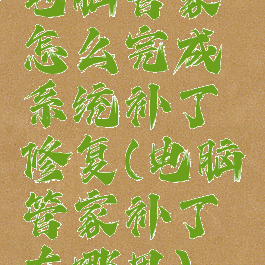 电脑管家
怎么完成
系统补丁
修复(电脑
管家补丁
在哪里)